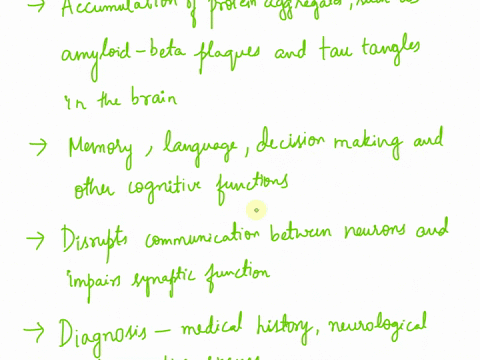 → Accumulation of protein aggregates, such as
amyloid-beta plaques and tau tangles
in the brain
→ Memory, language, decision making and
other cognitive functions
→ Disrupts communication between neurons and
impairs synaptic function
→ Diagnosis — medical history, neurological